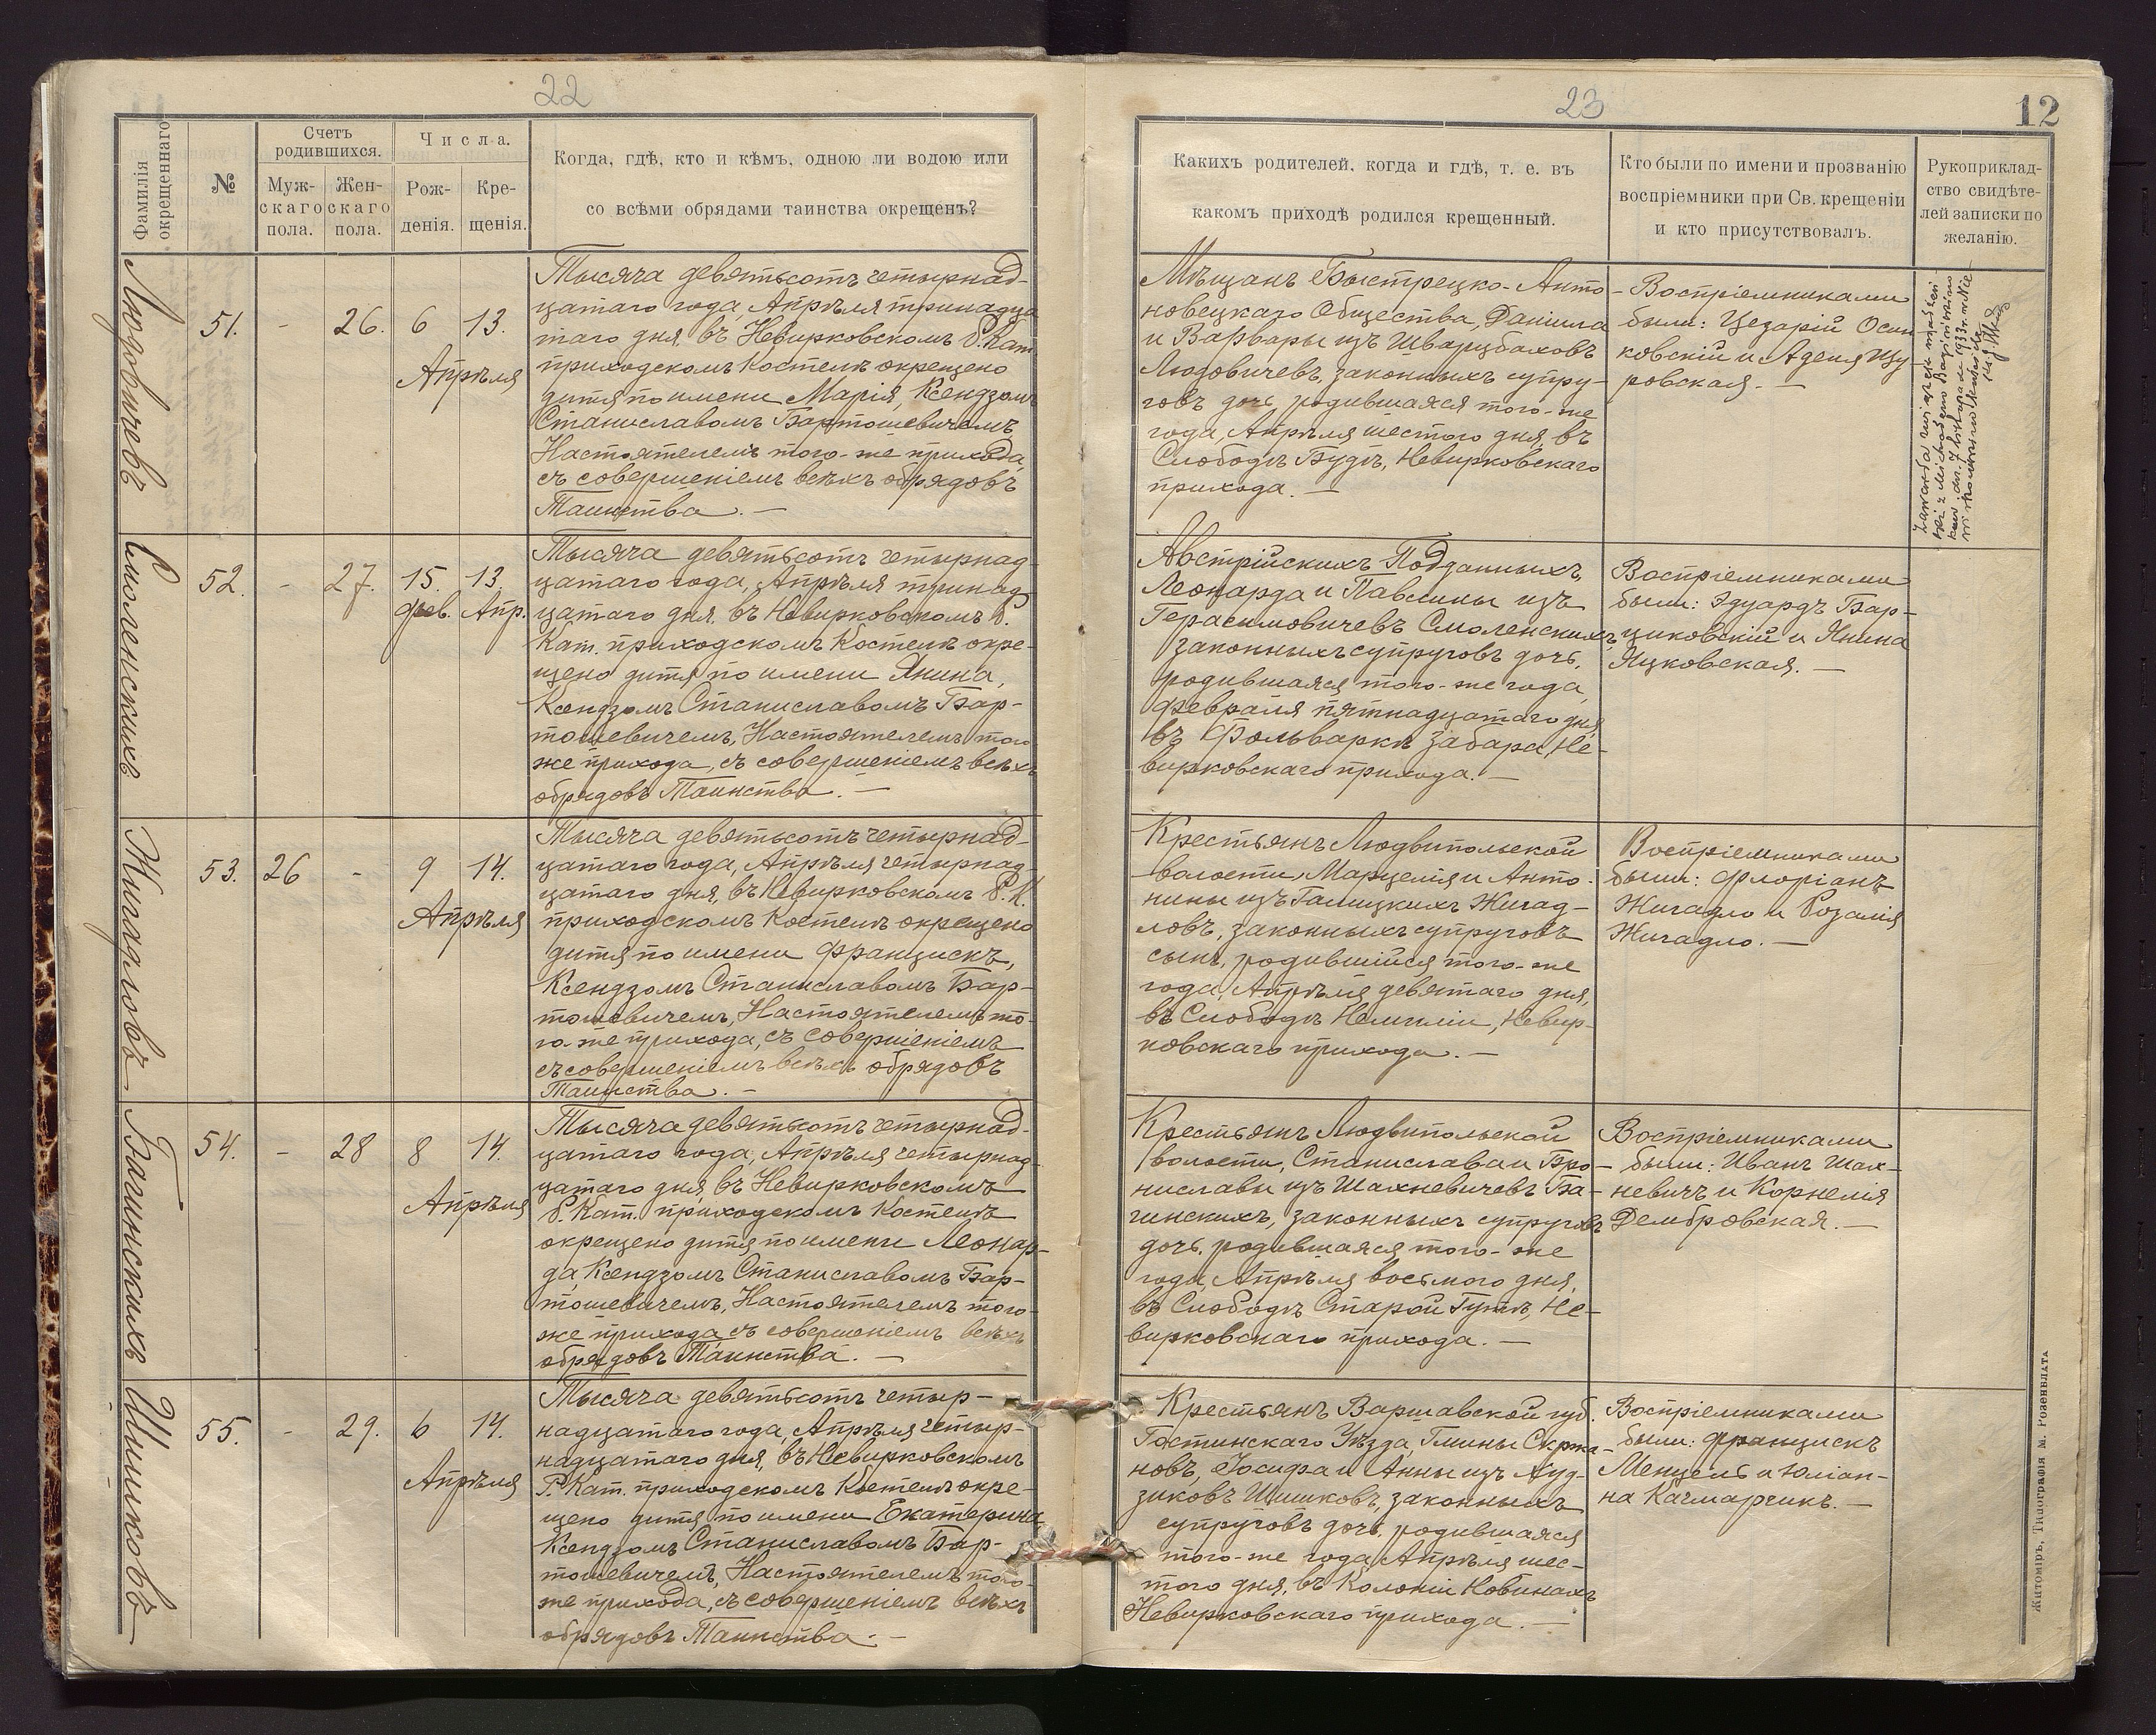 22
Фамилія окрещеннаго.
№
Счетъ родившихся.
Мужскаго пола.
Женскаго пола.
Числа.
Рожденія.
Крещенія.
Когда, гдѣ, кто и кѣмъ, одною ли водою или
со всѣми обрядами таинства окрещенъ?
Людовичевъ
51.
-
26.
6
13.
Апрѣля
Тысяча девятьсотъ четырнад-
цатаго года, Апрѣля тринадца
таго дня, въ Невирковскомъ Р. Кат.
приходскомъ Костелѣ окрещено
дитя по имени Марія, Ксендзомъ
Станиславомъ Бартошевичемъ,
Настоятелемъ того-же прихода,
съ совершеніемъ всѣхъ обрядовъ
Таинства. —
Смоленскихъ
52.
-
27.
15.
13.
фев.
Апр.
Тысяча девятьсотъ четырнад
цатаго года, Апрѣля тринад
цатаго дня, въ Невирковскомъ Р.
Кат. приходскомъ Костелѣ окре-
щено дитя по имени Янина,
Ксендзомъ Станиславомъ Бар-
тошевичемъ, Настоятелемъ того
же прихода, съ совершеніемъ всѣхъ
обрядовъ Таинства. —
Жигадловъ
53.
26
-
9
14.
Апрѣля
Тысяча девятьсотъ четырнад-
цатаго года, Апрѣля четырнад
цатаго дня, въ Невирковскомъ Р. К.
приходскомъ Костелѣ окрещено
дитя по имени Францискъ,
Ксендзомъ Станиславомъ Бар-
тошевичемъ, Настоятелемъ то-
го-же прихода, съ совершеніемъ
съ совершеніемъ всѣхъ обрядовъ
Таинства. —
Багинскихъ
54.
-
28
8
14.
Апрѣля
Тысяча девятьсотъ четырнад-
цатаго года, Апрѣля четырнад-
цатаго дня, въ Невирковскомъ
Р. Кат. приходскомъ Костелѣ
окрещено дитя по имени Леонар-
да, Ксендзомъ Станиславомъ Бар-
тошевичемъ, Настоятелемъ того-
же прихода, съ совершеніемъ всѣхъ
обрядовъ Таинства. —
Шишковъ
55.
-
29.
6
14.
Апрѣля
Тысяча девятьсотъ четыр-
надцатаго года, Апрѣля четыр-
надцатаго дня, въ Невирковскомъ
Р. Кат. приходскомъ Костелѣ окре-
щено дитя по имени Екатерина,
Ксендзомъ Станиславомъ Бар-
тошевичемъ, Настоятелемъ того-
же прихода, съ совершеніемъ всѣхъ
обрядовъ Таинства. —
23
12
Каких родителей, когда и гдѣ, т. е. въ
какомъ приходѣ родился крещенный.
Кто были по имени и прозванію
воспріемники при Св. крещеніи
и кто присутствовалъ.
Рукоприклад-
ство свидѣте-
лей записки по
желанію.
Мѣщанъ Быстрецко-Анто-
новецкаго Общества, Даніила
и Варвары изъ Шварцбаховъ
Людовичевъ, законныхъ супру-
говъ дочь, родившаяся того-же
года, Апрѣля шестого дня, въ
Слободѣ Будѣ, Невирковскаго
прихода. —
Воспріемниками
были: Цезарій Осин
ковскій и Аделя Цу-
ровская. —
Австрійскихъ Подданныхъ,
Леонарда и Павлины изъ
Герасимовичевъ Смоленскихъ,
законныхъ супруговъ дочь,
родившаяся того-же года,
Февраля пятнадцатаго дня,
въ Фольваркѣ Забара, Не-
вирковскаго прихода. —
Воспріемниками
были: Эдуардъ Бар-
циковскій и Янина
Яцковская. —
Крестьянъ Людвипольской
волости, Марцелія и Анто-
нины изъ Галицкихъ Жигад-
ловъ, законныхъ супруговъ
сынъ, родившійся того-же
года, Апрѣля девятаго дня,
въ Слободѣ Немиліи, Невир-
ковскаго прихода. —
Воспріемниками
были: Флоріанъ
Жигадло и Розалія
Жигадло. —
Крестьянъ Людвипольской
волости, Станислава и Бро-
ниславы изъ Шахневичевъ Ба-
гинскихъ, законныхъ супруговъ
дочь, родившаяся того-же
года, Апрѣля восьмого дня,
въ Слободѣ Старой Гутѣ, Не-
вирковскаго прихода. —
Воспріемниками
были: Иванъ Шах-
невичъ и Корнелія
Дембровская. —
Крестьянъ Варшавской губ.
Гостинскаго Уѣзда, Гмины Скржа-
новъ, Іосифа и Анны изъ Луд-
зиковъ Шишковъ, законныхъ
супруговъ дочь, родившаяся
того-же года, Апрѣля шес-
того дня, въ Колоніи Новинахъ
Невирковскаго прихода. —
Воспріемниками
были: Францискъ
Менцель и Юліан-
на Качмарчикъ. —
Житоміръ, Типографія М. Розенблата